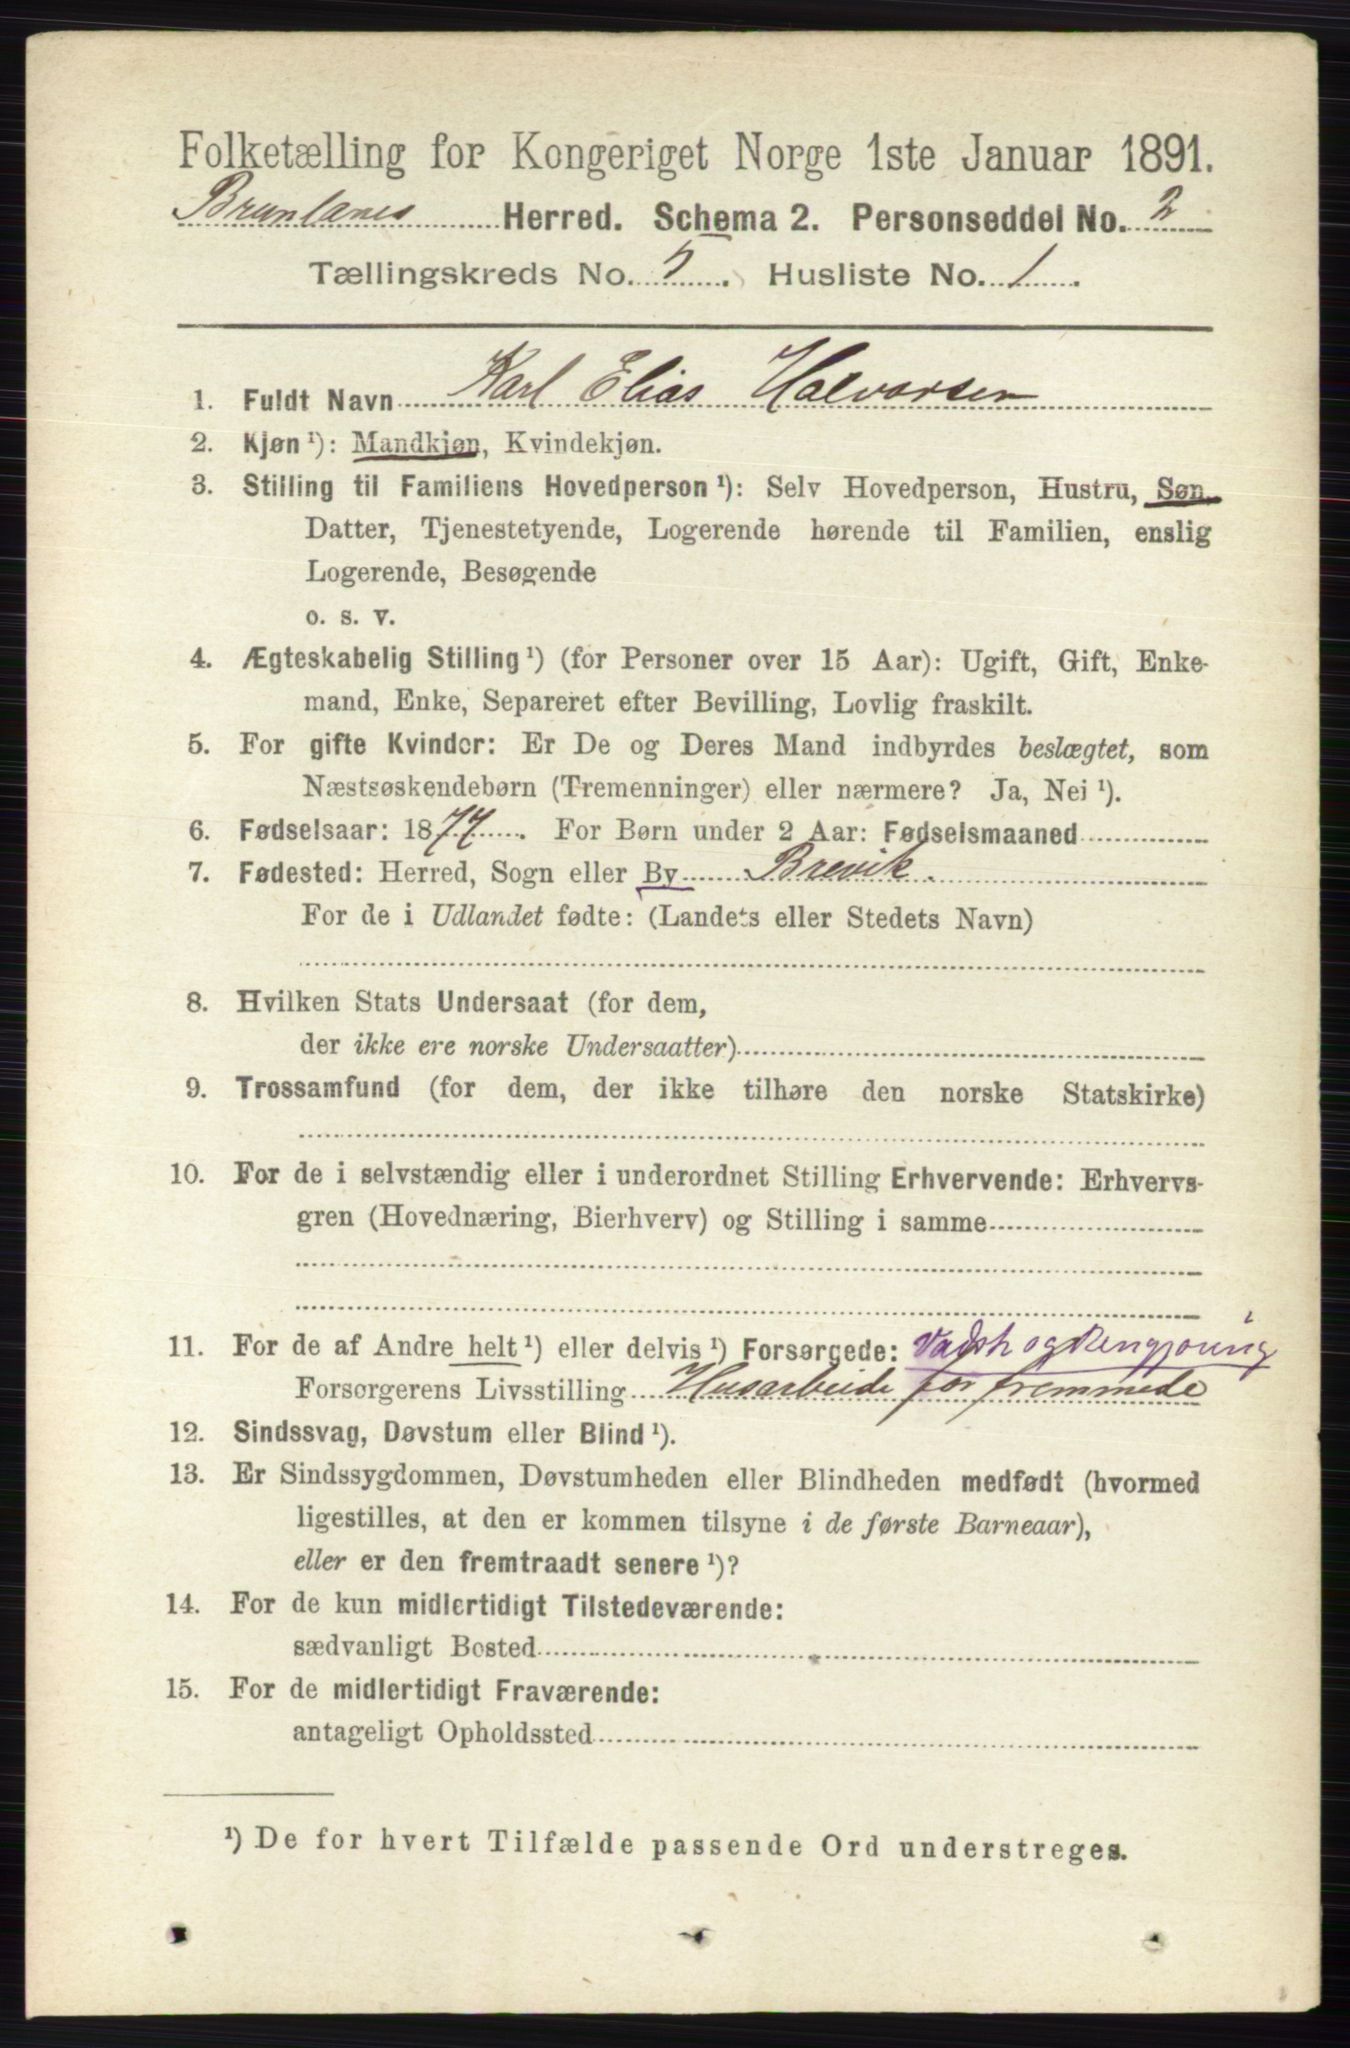 Folketælling for Kongeriget Norge 1ste Januar 1891.
Brunlanes Herred. Schema 2. Personseddel No. 2
Tællingskreds No. 5. Husliste No. 1.
1. Fuldt Navn Karl Elias Halvorsen
2. Kjøn ¹): Mandkjøn, Kvindekjøn.
3. Stilling til Familiens Hovedperson ¹): Selv Hovedperson, Hustru, Søn,
Datter, Tjenestetyende, Logerende hørende til Familien, enslig
Logerende, Besøgende
o. s. v.
4. Ægteskabelig Stilling ¹) (for Personer over 15 Aar): Ugift, Gift, Enke-
mand, Enke, Separeret efter Bevilling, Lovlig fraskilt.
5. For gifte Kvinder: Er De og Deres Mand indbyrdes beslægtet, som
Næstsøskendebørn (Tremenninger) eller nærmere? Ja, Nei ¹).
6. Fødselsaar: 1877. For Børn under 2 Aar: Fødselsmaaned
7. Fødested: Herred, Sogn eller By Brevik.
For de i Udlandet fødte: (Landets eller Stedets Navn)
8. Hvilken Stats Undersaat (for dem,
der ikke ere norske Undersaatter)
9. Trossamfund (for dem, der ikke tilhøre den norske Statskirke)
10. For de i selvstændig eller i underordnet Stilling Erhvervende: Erhvervs-
gren (Hovednæring, Bierhverv) og Stilling i samme
11. For de af Andre helt ¹) eller delvis ¹) Forsørgede: Vadsk og Rengjøring
Forsørgerens Livsstilling Husarbeide for fremmede
12. Sindssvag, Døvstum eller Blind ¹).
13. Er Sindssygdommen, Døvstumheden eller Blindheden medfødt (hvormed
ligestilles, at den er kommen tilsyne i de første Barneaar),
eller er den fremtraadt senere ¹)?
14. For de kun midlertidigt Tilstedeværende:
sædvanligt Bosted
15. For de midlertidigt Fraværende:
antageligt Opholdssted
¹) De for hvert Tilfælde passende Ord understreges.